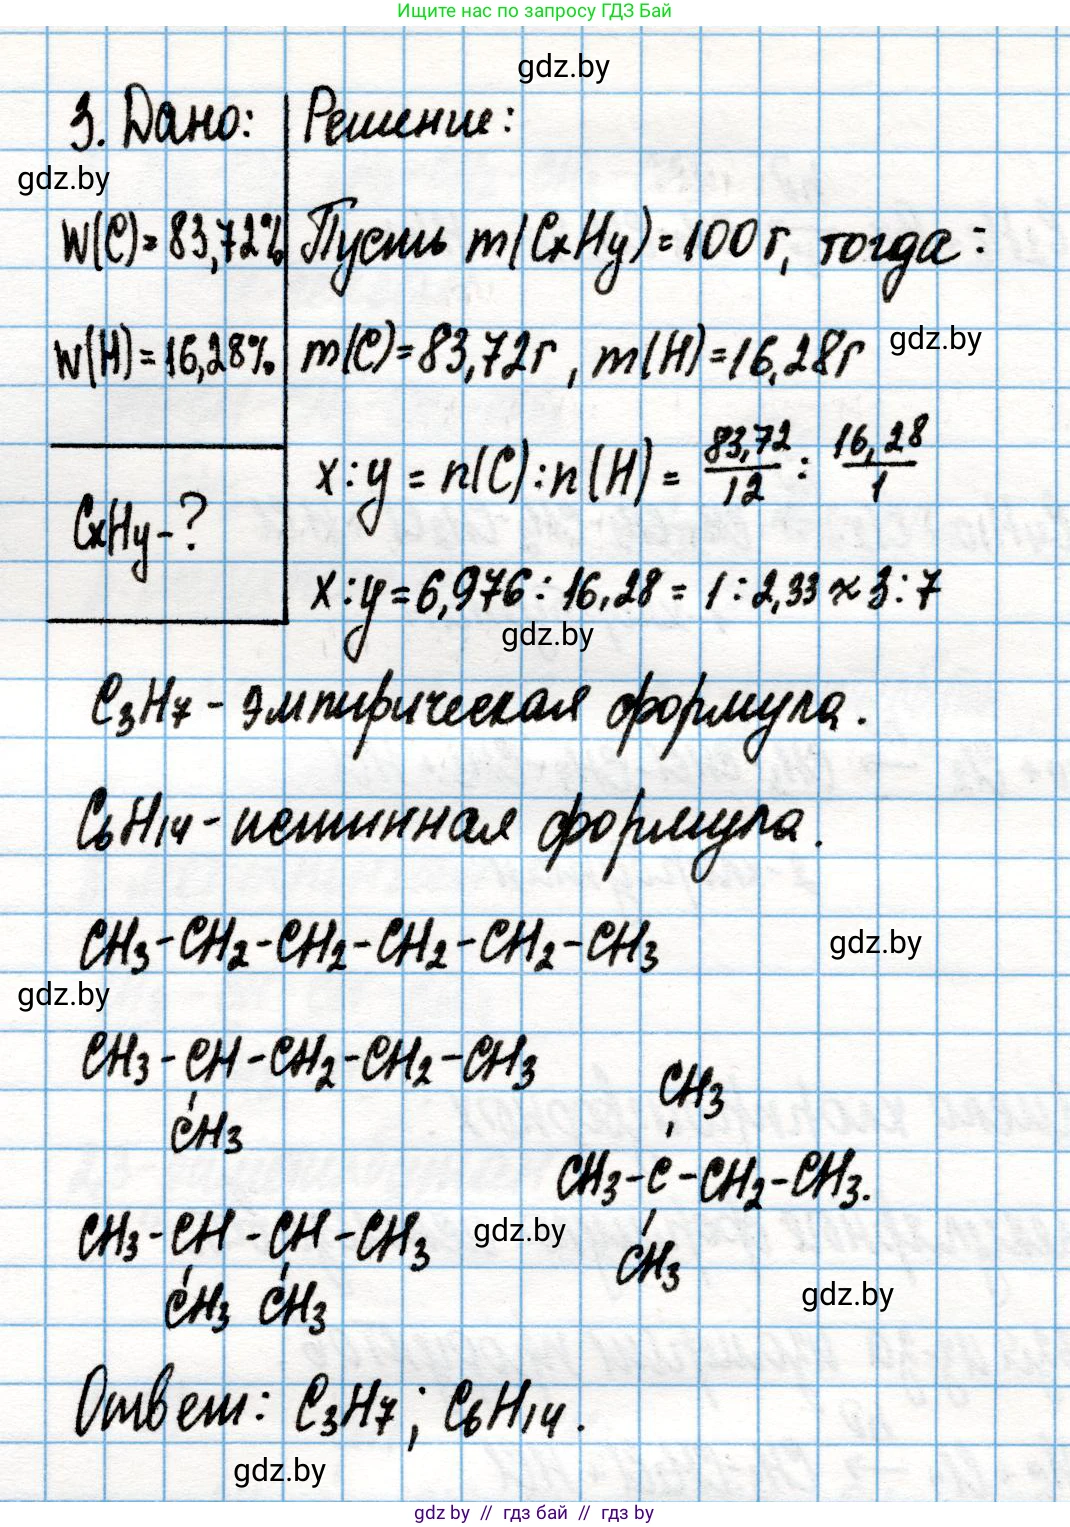 Ищите нас по запросу ГДЗ Бай
gdz.by
3. Дано:
Решение:
gdz.by
W(C)=83,72%
Пусть m(CxHy)=100г, тогда:
gdz.by
W(H)=16,28%
m(C)=83,72г, m(H)=16,28г
x:y = n(C):n(H) = 83,72/12 : 16,28/1
CxHy-?
x:y=6,976:16,28 = 1:2,33 ≈ 3:7
gdz.by
C3H7 - эмпирическая формула.
C6H14 - истинная формула.
CH3-CH2-CH2-CH2-CH2-CH3
gdz.by
gdz.by
CH3-CH-CH2-CH2-CH3
CH3
CH3
CH3-C-CH2-CH3.
CH3
CH3-CH-CH-CH3
gdz.by
CH3 CH3
gdz.by
Ответ: C3H7; C6H14.
gdz.by
gdz by // гдз бай // gdz by